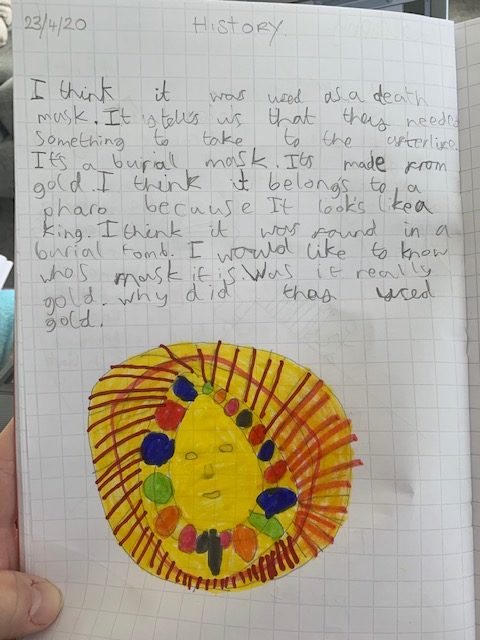 23/4/20
HISTORY.
I think it was used as a death
mask. It stells us that they needed
something to take to the afterlife.
It's a burial mask. Its made from
gold. I think it belongs to a
pharo because It looks like a
king. I think it was found in a
burial tomb. I would like to know
who's mask it is. Was it really
gold. why did they used
gold.